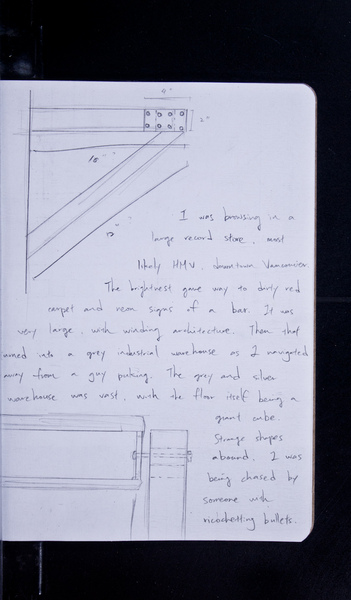 4"
2"
16"
12"
I was browsing in a
large record store, most
likely HMV, downtown Vancouver.
The brightness gave way to dirty red
carpet and neon signs of a bar. It was
very large, with winding architecture. Then that
turned into a grey industrial warehouse as I navigated
away from a guy puking. The grey and silver
warehouse was vast, with the floor itself being a
giant cube.
Strange shapes
abound. I was
being chased by
someone with
ricochetting bullets.